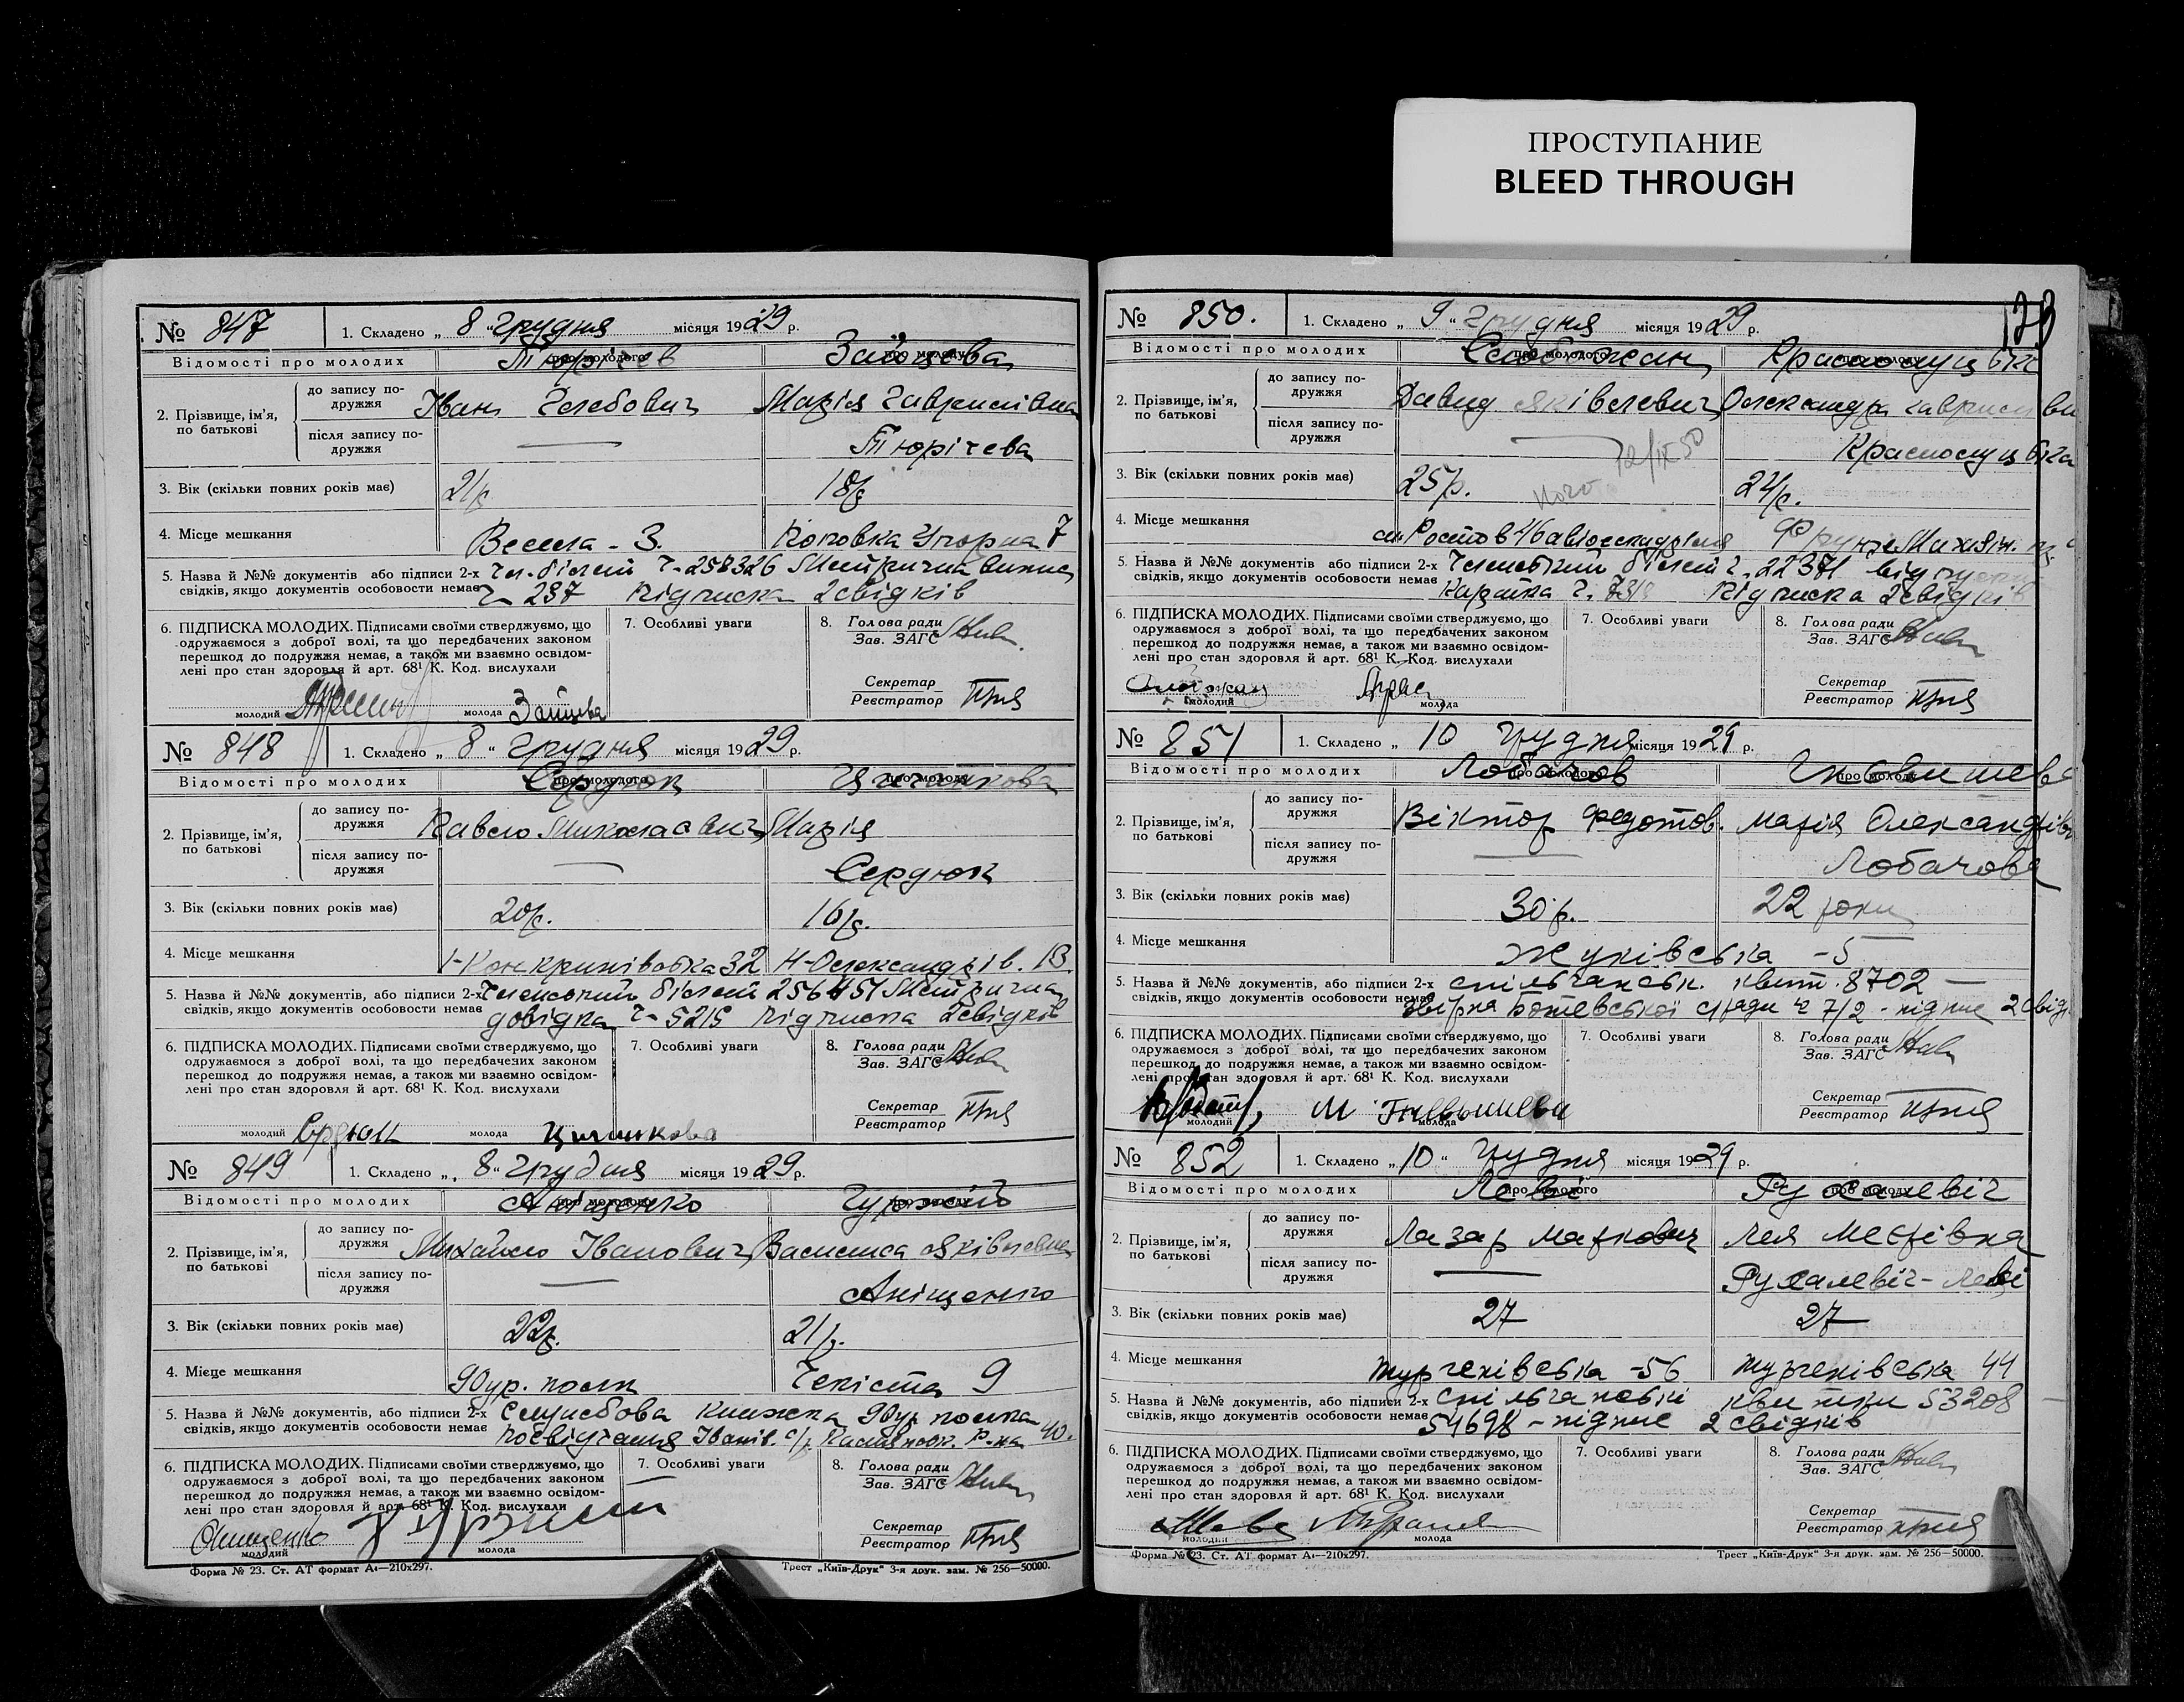 ПРОСТУПАНИЕ
BLEED THROUGH
№ 847
1. Складено „ 8 “ грудня місяця 1929 р.
Відомості про молодих
про молодого
про молоду
Тюрічев
Зайцева
2. Прізвище, ім'я, по батькові
до запису подружжя
Іван Глебович
Марія Гаврилівна
після запису подружжя
—
Тюрічева
3. Вік (скільки повних років має)
21 р.
18 р.
4. Місце мешкання
Весела - 3.
7
5. Назва й №№ документів або підписи 2-х
чл. білет ч. 258326
свідків, якщо документів особовости немає
ч. 237 Підписка 2 свідків
6. ПІДПИСКА МОЛОДИХ. Підписами своїми стверджуємо, що
одружаємося з доброї волі, та що передбачених законом
перешкод до подружжя немає, а також ми взаємно освідом-
лені про стан здоровля й арт. 68¹ К. Код. вислухали
молодий
молода Зайцева
7. Особливі уваги
8. Голова ради
Зав. ЗАГС
Секретар
Реєстратор
№ 848
1. Складено „ 8 “ грудня місяця 1929 р.
Відомості про молодих
про молодого
про молоду
Сердюк
2. Прізвище, ім'я, по батькові
до запису подружжя
Павло Миколаєвич
Марія
після запису подружжя
—
Сердюк
3. Вік (скільки повних років має)
20 р.
16 р.
4. Місце мешкання
32
Н-Олександрів. 13.
5. Назва й №№ документів, або підписи 2-х
Членський білет 256451 Метрична
свідків, якщо документів особовости немає
довідка ч. 5215 Підписка 2 свідків
6. ПІДПИСКА МОЛОДИХ. Підписами своїми стверджуємо, що
одружаємося з доброї волі, та що передбачених законом
перешкод до подружжя немає, а також ми взаємно освідом-
лені про стан здоровля й арт. 68¹ К. Код. вислухали
молодий
молода
7. Особливі уваги
8. Голова ради
Зав. ЗАГС
Секретар
Реєстратор
№ 849
1. Складено „ 8 “ грудня місяця 1929 р.
Відомості про молодих
про молодого
про молоду
Аніщенко
Гуржій
2. Прізвище, ім'я, по батькові
до запису подружжя
Михайло Іванович
Василиса Яківлевна
після запису подружжя
—
Аніщенко
3. Вік (скільки повних років має)
22 р.
21 р.
4. Місце мешкання
90 ур. полк
Чекіста 9
5. Назва й №№ документів, або підписи 2-х
Службова книжка 90 ур. полка
свідків, якщо документів особовости немає
посвідчання Іванів. с/р. р-на 40.
6. ПІДПИСКА МОЛОДИХ. Підписами своїми стверджуємо, що
одружаємося з доброї волі, та що передбачених законом
перешкод до подружжя немає, а також ми взаємно освідом-
лені про стан здоровля й арт. 68¹ К. Код. вислухали
молодий
молода
7. Особливі уваги
8. Голова ради
Зав. ЗАГС
Секретар
Реєстратор
Форма № 23. Ст. АТ формат А₄—210х297.
Трест „Київ-Друк“ 3-я друк. зам. № 256—50000.
№ 850.
1. Складено „ 9 “ грудня місяця 1929 р.
Відомості про молодих
про молодого
про молоду
Слобожан
2. Прізвище, ім'я, по батькові
до запису подружжя
Давид Яківлевич
Олександра
після запису подружжя
—
12/IX 50
3. Вік (скільки повних років має)
25 р.
24 р.
4. Місце мешкання
5. Назва й №№ документів або підписи 2-х
Членський білет ч. 22371
свідків, якщо документів особовости немає
Підписка 2 свідків
6. ПІДПИСКА МОЛОДИХ. Підписами своїми стверджуємо, що
одружаємося з доброї волі, та що передбачених законом
перешкод до подружжя немає, а також ми взаємно освідом-
лені про стан здоровля й арт. 68¹ К. Код. вислухали
молодий
молода
7. Особливі уваги
8. Голова ради
Зав. ЗАГС
Секретар
Реєстратор
№ 851
1. Складено „ 10 грудня місяця 1929 р.
Відомості про молодих
про молодого
про молоду
Лобачов
2. Прізвище, ім'я, по батькові
до запису подружжя
Віктор Федотов.
Марія Олександрівн
після запису подружжя
—
Лобачова
3. Вік (скільки повних років має)
30 р.
22 роки
4. Місце мешкання
Жуківська - 5
5. Назва й №№ документів, або підписи 2-х
спільчанськ. квит. 8702 —
свідків, якщо документів особовости немає
ч 7/2 - підпис 2 свід.
6. ПІДПИСКА МОЛОДИХ. Підписами своїми стверджуємо, що
одружаємося з доброї волі, та що передбачених законом
перешкод до подружжя немає, а також ми взаємно освідом-
лені про стан здоровля й арт. 68¹ К. Код. вислухали
молодий
молода
7. Особливі уваги
8. Голова ради
Зав. ЗАГС
Секретар
Реєстратор
№ 852
1. Складено „ 10 “ грудня місяця 1929 р.
Відомості про молодих
про молодого
про молоду
Леві
Рухалевіч
2. Прізвище, ім'я, по батькові
до запису подружжя
Лазар Маркович
Лея Меєрівна
після запису подружжя
—
Рухалевіч - Леві
3. Вік (скільки повних років має)
27
27
4. Місце мешкання
Тургенівська - 56
Тургенівська 44
5. Назва й №№ документів, або підписи 2-х
спільчанські квитки 53208 —
свідків, якщо документів особовости немає
54698 - підпис 2 свідків
6. ПІДПИСКА МОЛОДИХ. Підписами своїми стверджуємо, що
одружаємося з доброї волі, та що передбачених законом
перешкод до подружжя немає, а також ми взаємно освідом-
лені про стан здоровля й арт. 68¹ К. Код. вислухали
молодий
молода
7. Особливі уваги
8. Голова ради
Зав. ЗАГС
Секретар
Реєстратор
Форма № 23. Ст. АТ формат А₄—210х297.
Трест „Київ-Друк“ 3-я друк. зам. № 256—50000.